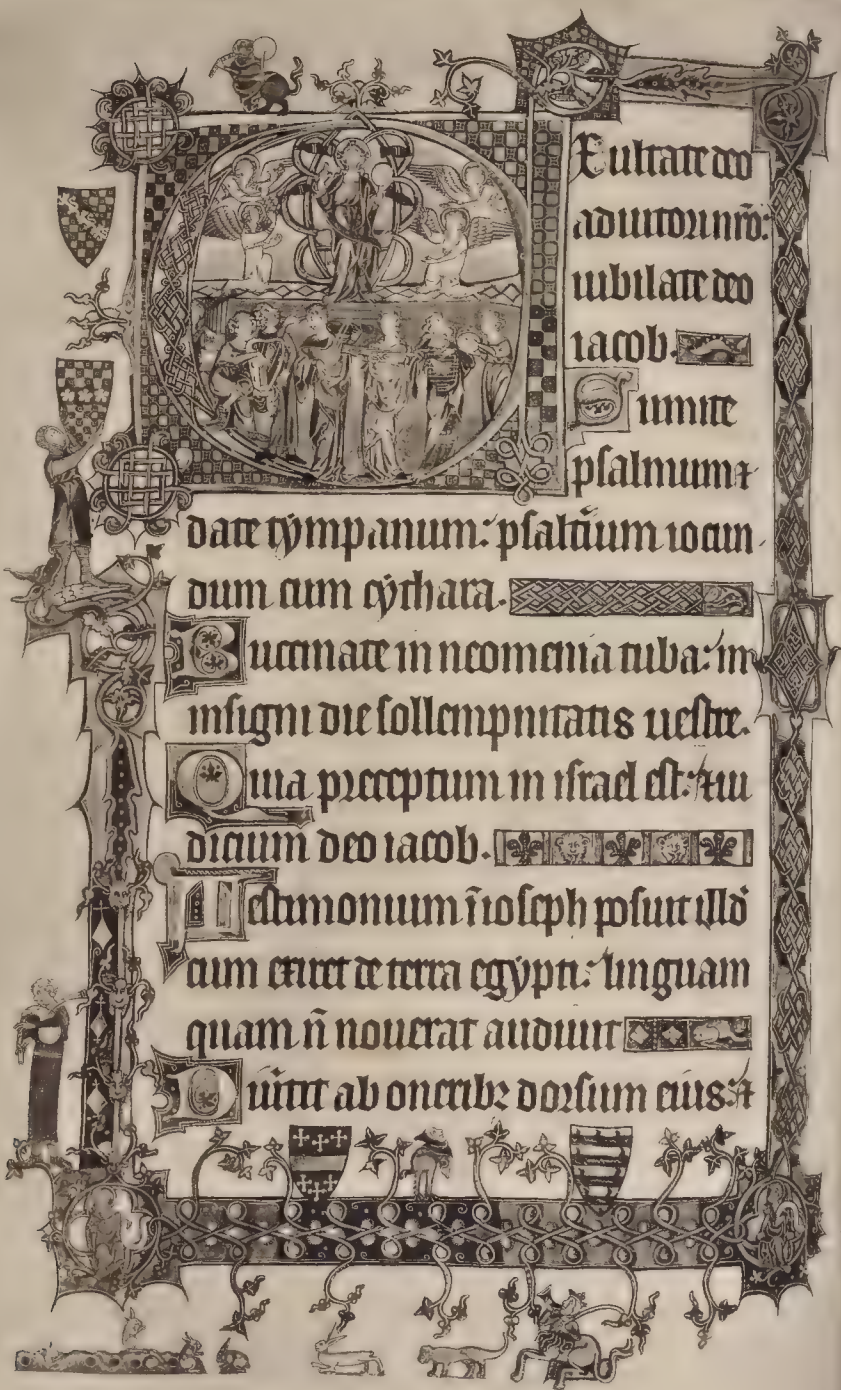 Exultate deo
adiutori nr̄o:
iubilate deo
iacob.
Sumite
psalmum ⁊
date tympanum: psalt̄ium iocun
dum cum cythara.
Buccinate in neomenia tuba: in
insigni die sollempnitatis uestre.
Quia preceptum in israel est: ⁊ iu
dicium deo iacob.
Testimonium ī ioseph posuit illd̄
cum exiret de terra egypti: linguam
quam n̄ nouerat audiuit
Diu̅tit ab onerib⁊ dorsum eius: ⁊